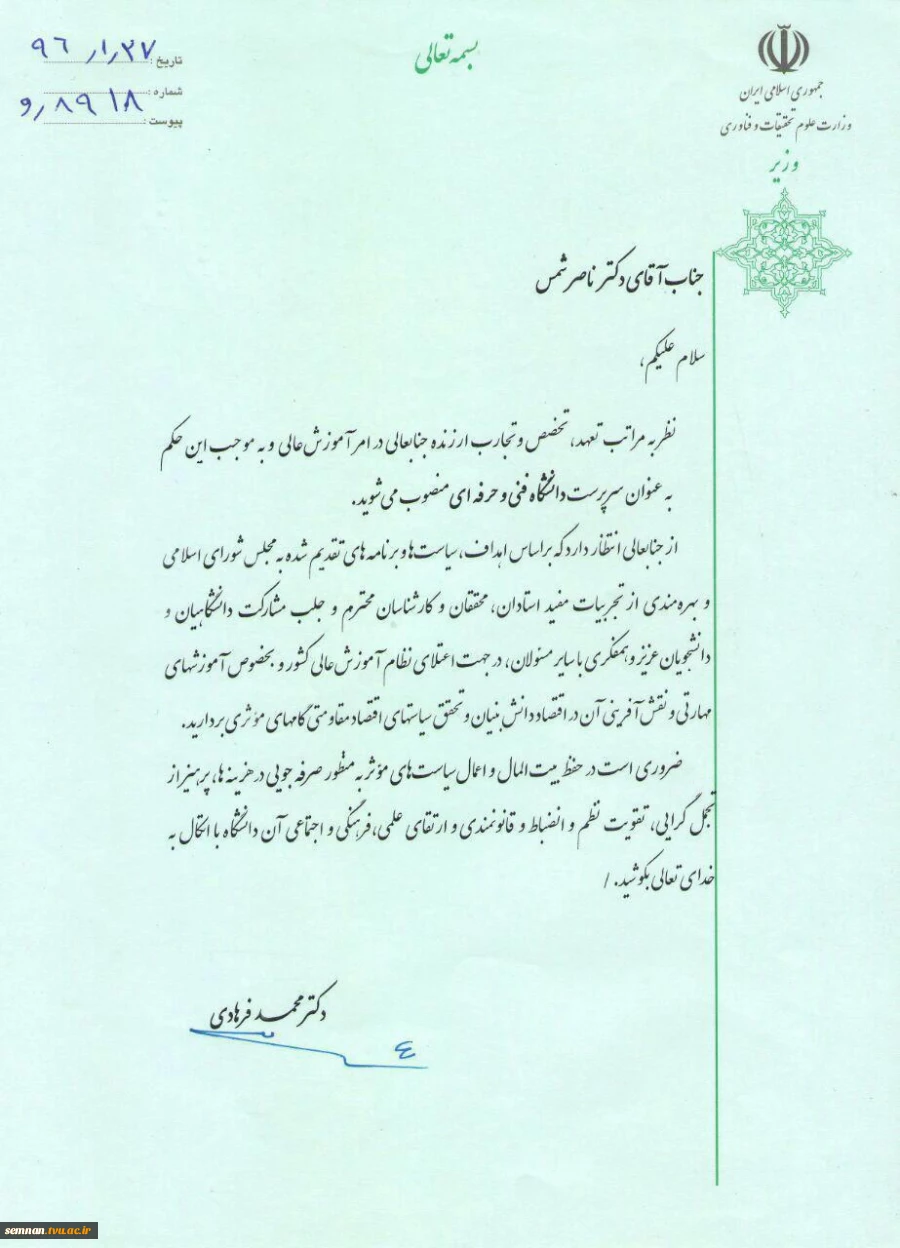 بسمه تعالی
جمهوری اسلامی ایران
وزارت علوم تحقیقات و فناوری
وزیر
تاریخ: ۹۶/۱/۲۷
شماره: ۸۹۱۸/و
پیوست:
جناب آقای دکتر ناصر شمس
سلام علیکم،
نظر به مراتب تعهد، تخصص و تجارب ارزنده جنابعالی در امر آموزش عالی و به موجب این حکم
به عنوان سرپرست دانشگاه فنی و حرفه ای منصوب می شوید.
از جنابعالی انتظار دارد که بر اساس اهداف، سیاست ها و برنامه های تقدیم شده به مجلس شورای اسلامی
و بهره مندی از تجربیات مفید استادان، محققان و کارشناسان محترم و جلب مشارکت دانشگاهیان و
دانشجویان عزیز و همفکری با سایر مسئولان، در جهت اعتلای نظام آموزش عالی کشور و بخصوص آموزشهای
مهارتی و نقش آفرینی آن در اقتصاد دانش بنیان و تحقق سیاستهای اقتصاد مقاومتی گامهای مؤثری بردارید.
ضروری است در حفظ بیت المال و اعمال سیاست های مؤثر به منظور صرفه جویی در هزینه ها، پرهیز از
تجمل گرایی، تقویت نظم و انضباط و قانونمندی و ارتقای علمی، فرهنگی و اجتماعی آن دانشگاه با اتکال به
خدای تعالی بکوشید. /
دکتر محمد فرهادی
semnan.tvu.ac.ir